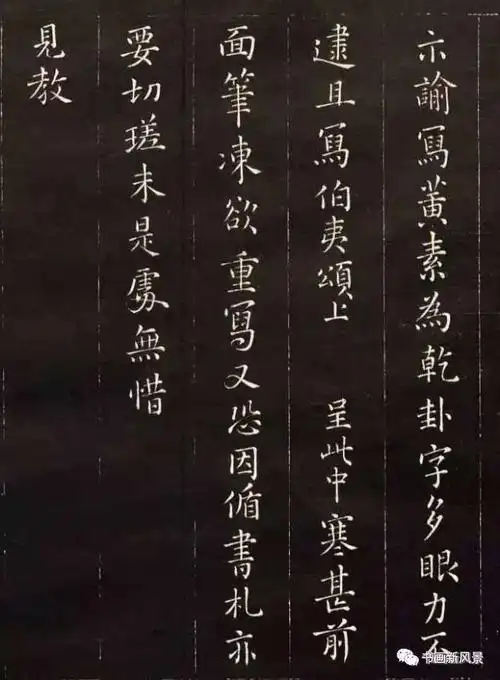 示諭寫黃素為乾卦字多眼力不
逮且寫伯夷頌上 呈此中寒甚前
面筆凍欲重寫又恐因循書札亦
要切瑳未是處無惜
見教
书画新风景